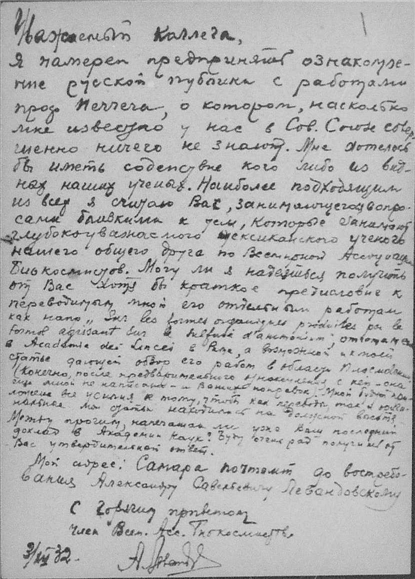 Уважаемый Коллега,
Я намерен предпринять ознакомле-
ние русской публики с работами
проф Геррера, о котором, насколько
мне известно у нас в Сов. Союзе совер
шенно ничего не знают. Мне хотелось
бы иметь содействие кого либо из вид-
ных наших ученых. Наиболее подходящим
из всех я считаю Вас, занимающегося вопро-
сами близкими к тем, которые занимают
глубокоуважаемого мексиканского ученого
нашего общего друга по Всемирной Ассоциации
Биокосмистов. Могу ли я надеяться получить
от Вас хотя бы краткое предисловие к
переводимым мной его отдельным работам
как напр „ Sur les formes organiques produites par le
formol agissant sur le
в Academia dei Lincei в Риме, а возможно и к моей
статье дающей обзор его работ в области Плазмогении
(конечно, после предварительного ознакомления с ней - она
еще мной не написана - и Вашей поправки. Мной будут при-
ложены все усилия к тому, чтобы как перевода, так и
на должной высоте.
Между прочим, напечатан ли уже Ваш последний
доклад в Академии наук? Буду очень рад получить от
Вас утвердительный ответ.
Мой адрес: Самара почтамт до востребо-
вания Александру Савельевичу
С горячим приветом
член Всем. Асс. Биокосмистов
3/ 32.